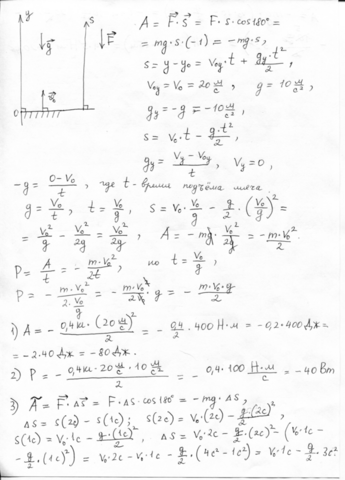 y
s
g⃗
F⃗
v⃗₀
0
A = F⃗·s⃗ = F·s·cos180° =
= mg·s·(-1) = -mg·s,
s = y-y₀ = v₀y·t + gy·t²/2,
v₀y = v₀ = 20 м/с, g = 10 м/с²,
gy = -g = -10 м/с²,
s = v₀·t - g·t²/2,
gy = (vy - v₀y)/t, vy = 0,
-g = (0-v₀)/t, где t - время подъёма мяча
g = v₀/t, t = v₀/g, s = v₀·v₀/g - g/2·(v₀/g)² =
= v₀²/g - v₀²/2g = v₀²/2g, A = -mg·v₀²/2g = -m·v₀²/2.
P = A/t = -m·v₀²/2t, но t = v₀/g,
P = -m·v₀²/(2·v₀/g) = -m·v₀²/2v₀·g = -m·v₀·g/2
1) A = -0,4кг·(20 м/с)²/2 = -0,4/2·400 Н·м = -0,2·400 Дж =
= -2·40 Дж = -80 Дж.
2) P = -0,4кг·20 м/с·10 м/с²/2 = -0,4·100 Н·м/с = -40 Вт
3) Ã = F⃗·Δs⃗ = F·Δs·cos180° = -mg·Δs,
Δs = s(2c) - s(1c); s(2c) = v₀·(2c) - g·(2c)²/2,
s(1c) = v₀·1c - g·(1c)²/2, Δs = v₀·2c - g/2·(2c)² - (v₀·1c -
- g/2·(1c)²) = v₀·2c - v₀·1c - g/2·(4c² - 1c²) = v₀·1c - g/2·3c²